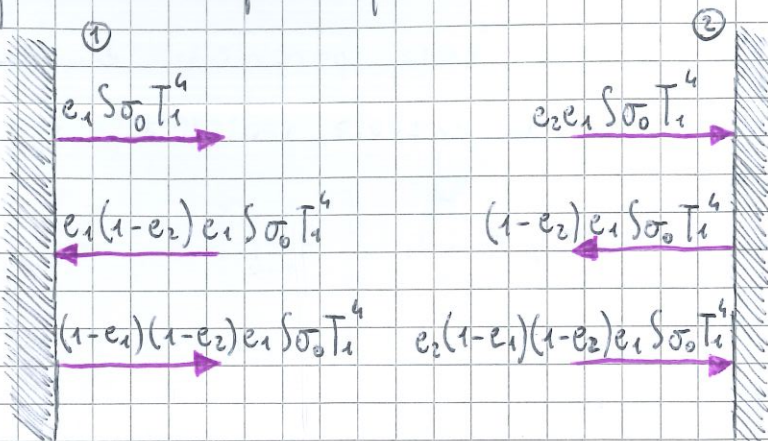 ① ②
e₁ S σ₀ T₁⁴ e₂e₁ S σ₀ T₁⁴
e₁(1-e₂) e₁ S σ₀ T₁⁴ (1-e₂) e₁ S σ₀ T₁⁴
(1-e₁)(1-e₂) e₁ S σ₀ T₁⁴ e₂(1-e₁)(1-e₂) e₁ S σ₀ T₁⁴